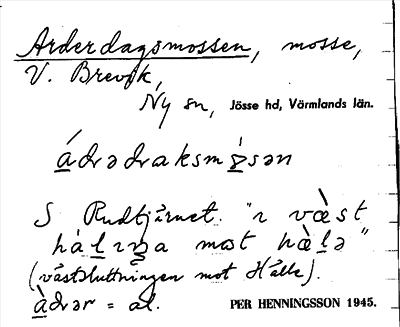 Arderdagsmossen, mosse,
V. Brevik,
Ny sn, Jösse hd, Värmlands län.
ádrədraksmo̹̊sən
S Rudtjärnet. "ı væ̀st
mot hæ̀lə"
(västsluttningen mot Hälle).
àdrər = al. PER HENNINGSSON 1945.